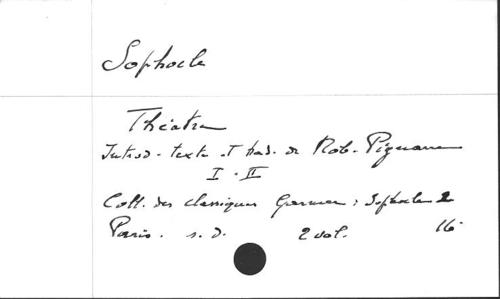 Sophocle
Théatre
Introd. texte et trad. de Rob. Pignarre
I - II
Coll. des classiques Garnier : Sophocle 2
Paris. s. d. 2 vol. 16°